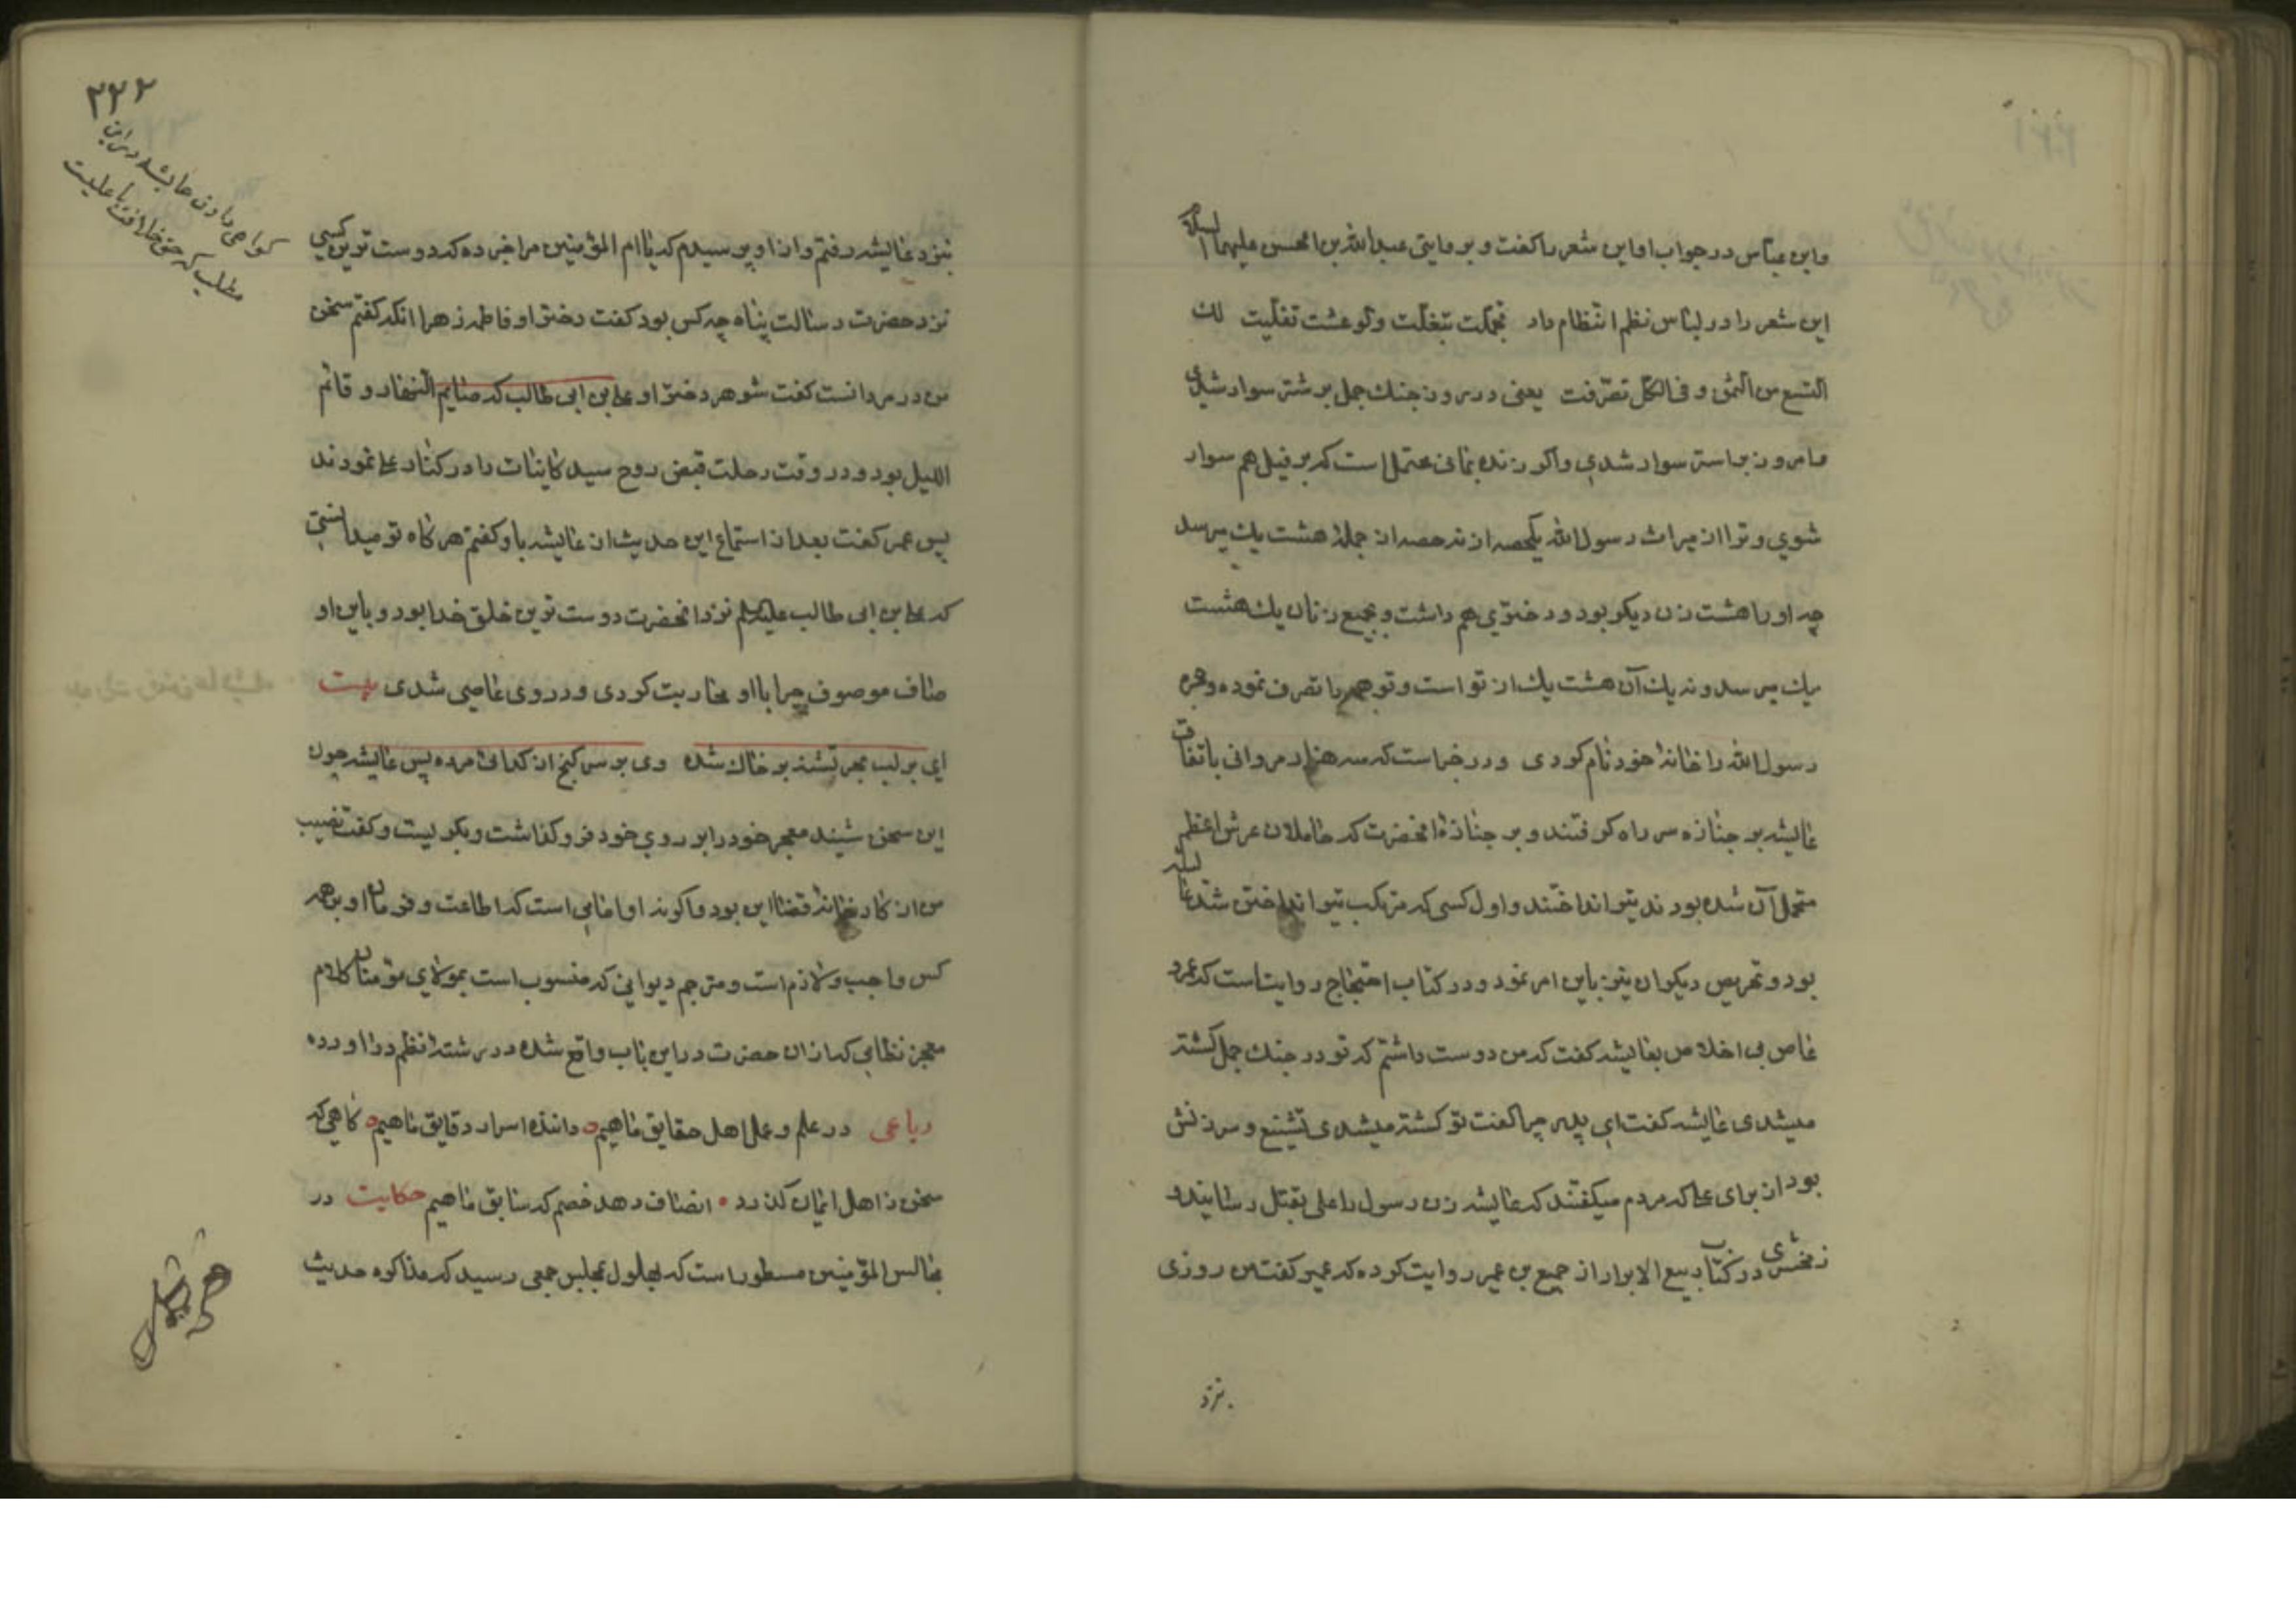 وابن عباس در جواب او این شعر را کفت و بروایتی عبدالله بن الحسن علیهما السلام
این شعر را در لباس نظم انتظام داد تجملت تبغلت ولو عشت تفیلت لك
التسع من الثمن و فی الکل تصرفت یعنی در روز جنك جمل بر شتر سوار شدی
وامروز بر استر سوار شدی واکر زنده بمانی محتمل است که بر فیل هم سوار
شوی و ترا از میراث رسول الله یکحصه از نه حصه از جمله هشت یك میرسد
چه او را هشت زن دیکر بود و دختری هم داشت و بجمیع زنان یك هشت
یك میرسد و نه یك آن هشت یك از تو است و تو همه را تصرف نموده وحجره
رسول الله را خانه خود نام کردی و در خبر است که سه هزار مروانی باتفاق
عایشه بر جنازه سر راه کرفتند و بر جنازه انحضرت که حاملان عرش اعظم
متحمل آن شده بودند تیر انداختند و اول کسی که مرتکب تیر انداختن شد عایشه
بود و تحریص دیکران نیز باین امر نمود و در کتاب احتجاج روایتاست که عمرو
عاص بی اخلاص بعایشه کفت که من دوست داشتم که تو در جنك جمل کشته
میشدی عایشه کفت ای پدر چرا کفت تو کشته میشدی تشنیع و سرزنش
بود از برای علی که مردم میکفتند که عایشه زن رسول را علی بقتل رسانید و
زمخشری در کتاب ربیع الابرار از جمیع بن عمیر روایت کرده که عمیر کفت من روزی
نزد
۲۲۲
کواهی دادن عایشه در این
مطلب که حق خلافت با علیست
بنزد عایشه رفتم و از او پرسیدم که یا ام المؤمنین مرا خبر ده که دوست ترین کسی
نزد حضرت رسالت پناه چه کس بود کفت دختر او فاطمه زهرا انکه کفتم سخن
من در مردانست کفت شوهر دختر او علی بن ابی طالب که صایم النهار و قائم
اللیل بود و در وقت رحلت قبض روح سید کاینات را در کنار علی نمودند
پس عمر کفت بعد از استماع این حدیث از عایشه باو کفتم هر کاه تو میدانستی
که علی بن ابی طالب علیه السلم نزد انحضرت دوست ترین خلق خدا بود و باین او
صاف موصوف چرا با او محاربت کردی و در روی عاصی شدی بیت
ای بر لب بحر تشنه بر خاك شده وی بر سر کنج از کدائی مرده پس عایشه چون
این سخن شنید معجر خود را بر روی خود فرو کذاشت و بکریست و کفت نصیب
من از کارخانه قضا این بود واکویند او امامی است که اطاعت و فرمان او بر همه
کس واجب ولازم است و مترجم دیوانی که منسوب است بمولای مؤمنان کلام
معجز نظامی که ازان حضرت در این باب واقع شده در رشته نظم در اورده
رباعی در علم و عمل اهل حقایق ماهیم داننده اسرار دقایق ماهیم کاهی که
سخن ز اهل ایمان کذرد انصاف دهد خصم که سابق ماهیم حکایت در
مجالس المؤمنین مسطور است که بهلول بمجلس جمعی رسید که مذاکره حدیث